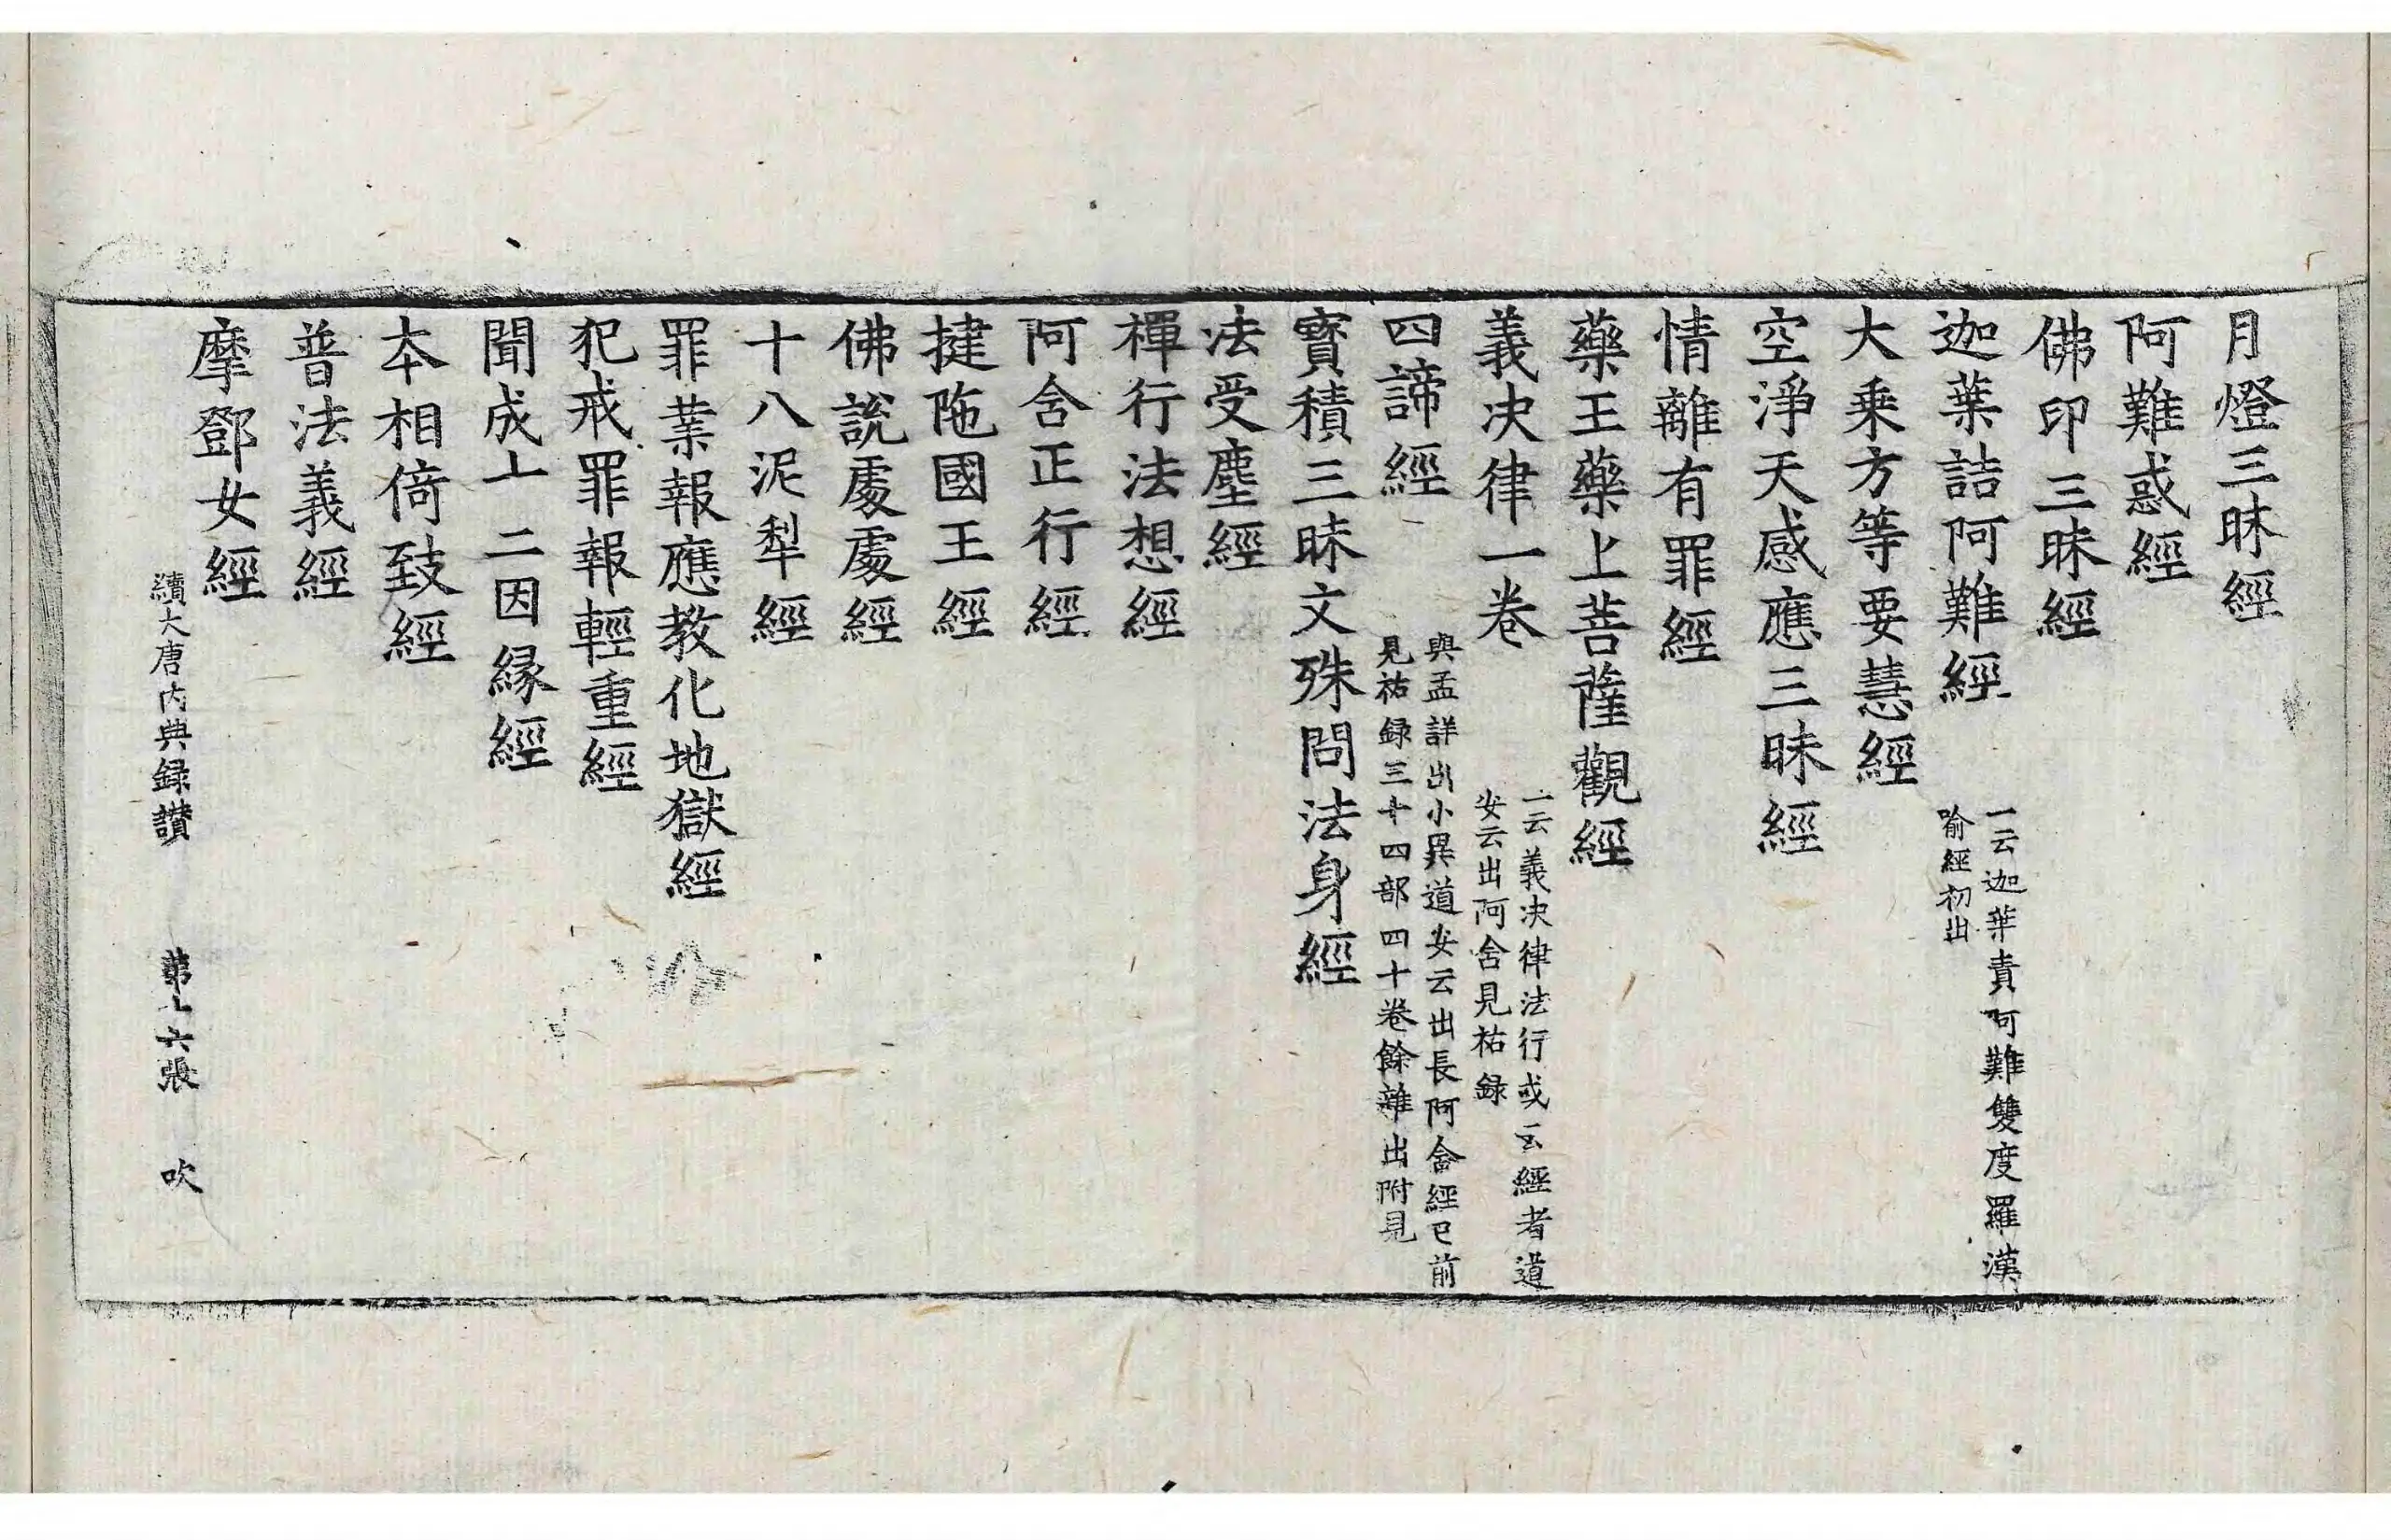 月燈三昧經
阿難惑經
佛印三昧經
迦葉詰阿難經
一云迦葉責阿難雙度羅漢
喻經初出
大乘方等要慧經
空淨天感應三昧經
情離有罪經
藥王藥上菩薩觀經
義决律一卷
一云義决律法行或云經者道
安云出阿舍見祐録
四諦經
與孟詳出小異道安云出長阿含經已前
見祐録三十四部四十卷餘雜出附見
寳積三昧文殊問法身經
法受塵經
禪行法想經
阿含正行經
揵陁國王經
佛說處處經
十八泥犁經
罪業報應教化地獄經
犯戒罪報輕重經
聞成十二因緣經
本相倚致經
普法義經
摩鄧女經
續大唐内典録讃　第十六張　吹